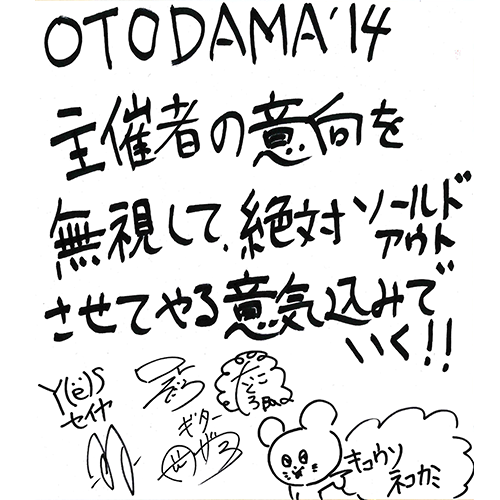 OTODAMA'14
主催者の意向を
無視して、絶対ソールドアウト
させてやる意気込みで
いく!!
Y(ë)S
セイヤ
ギター
キュウソ
ネコカミ